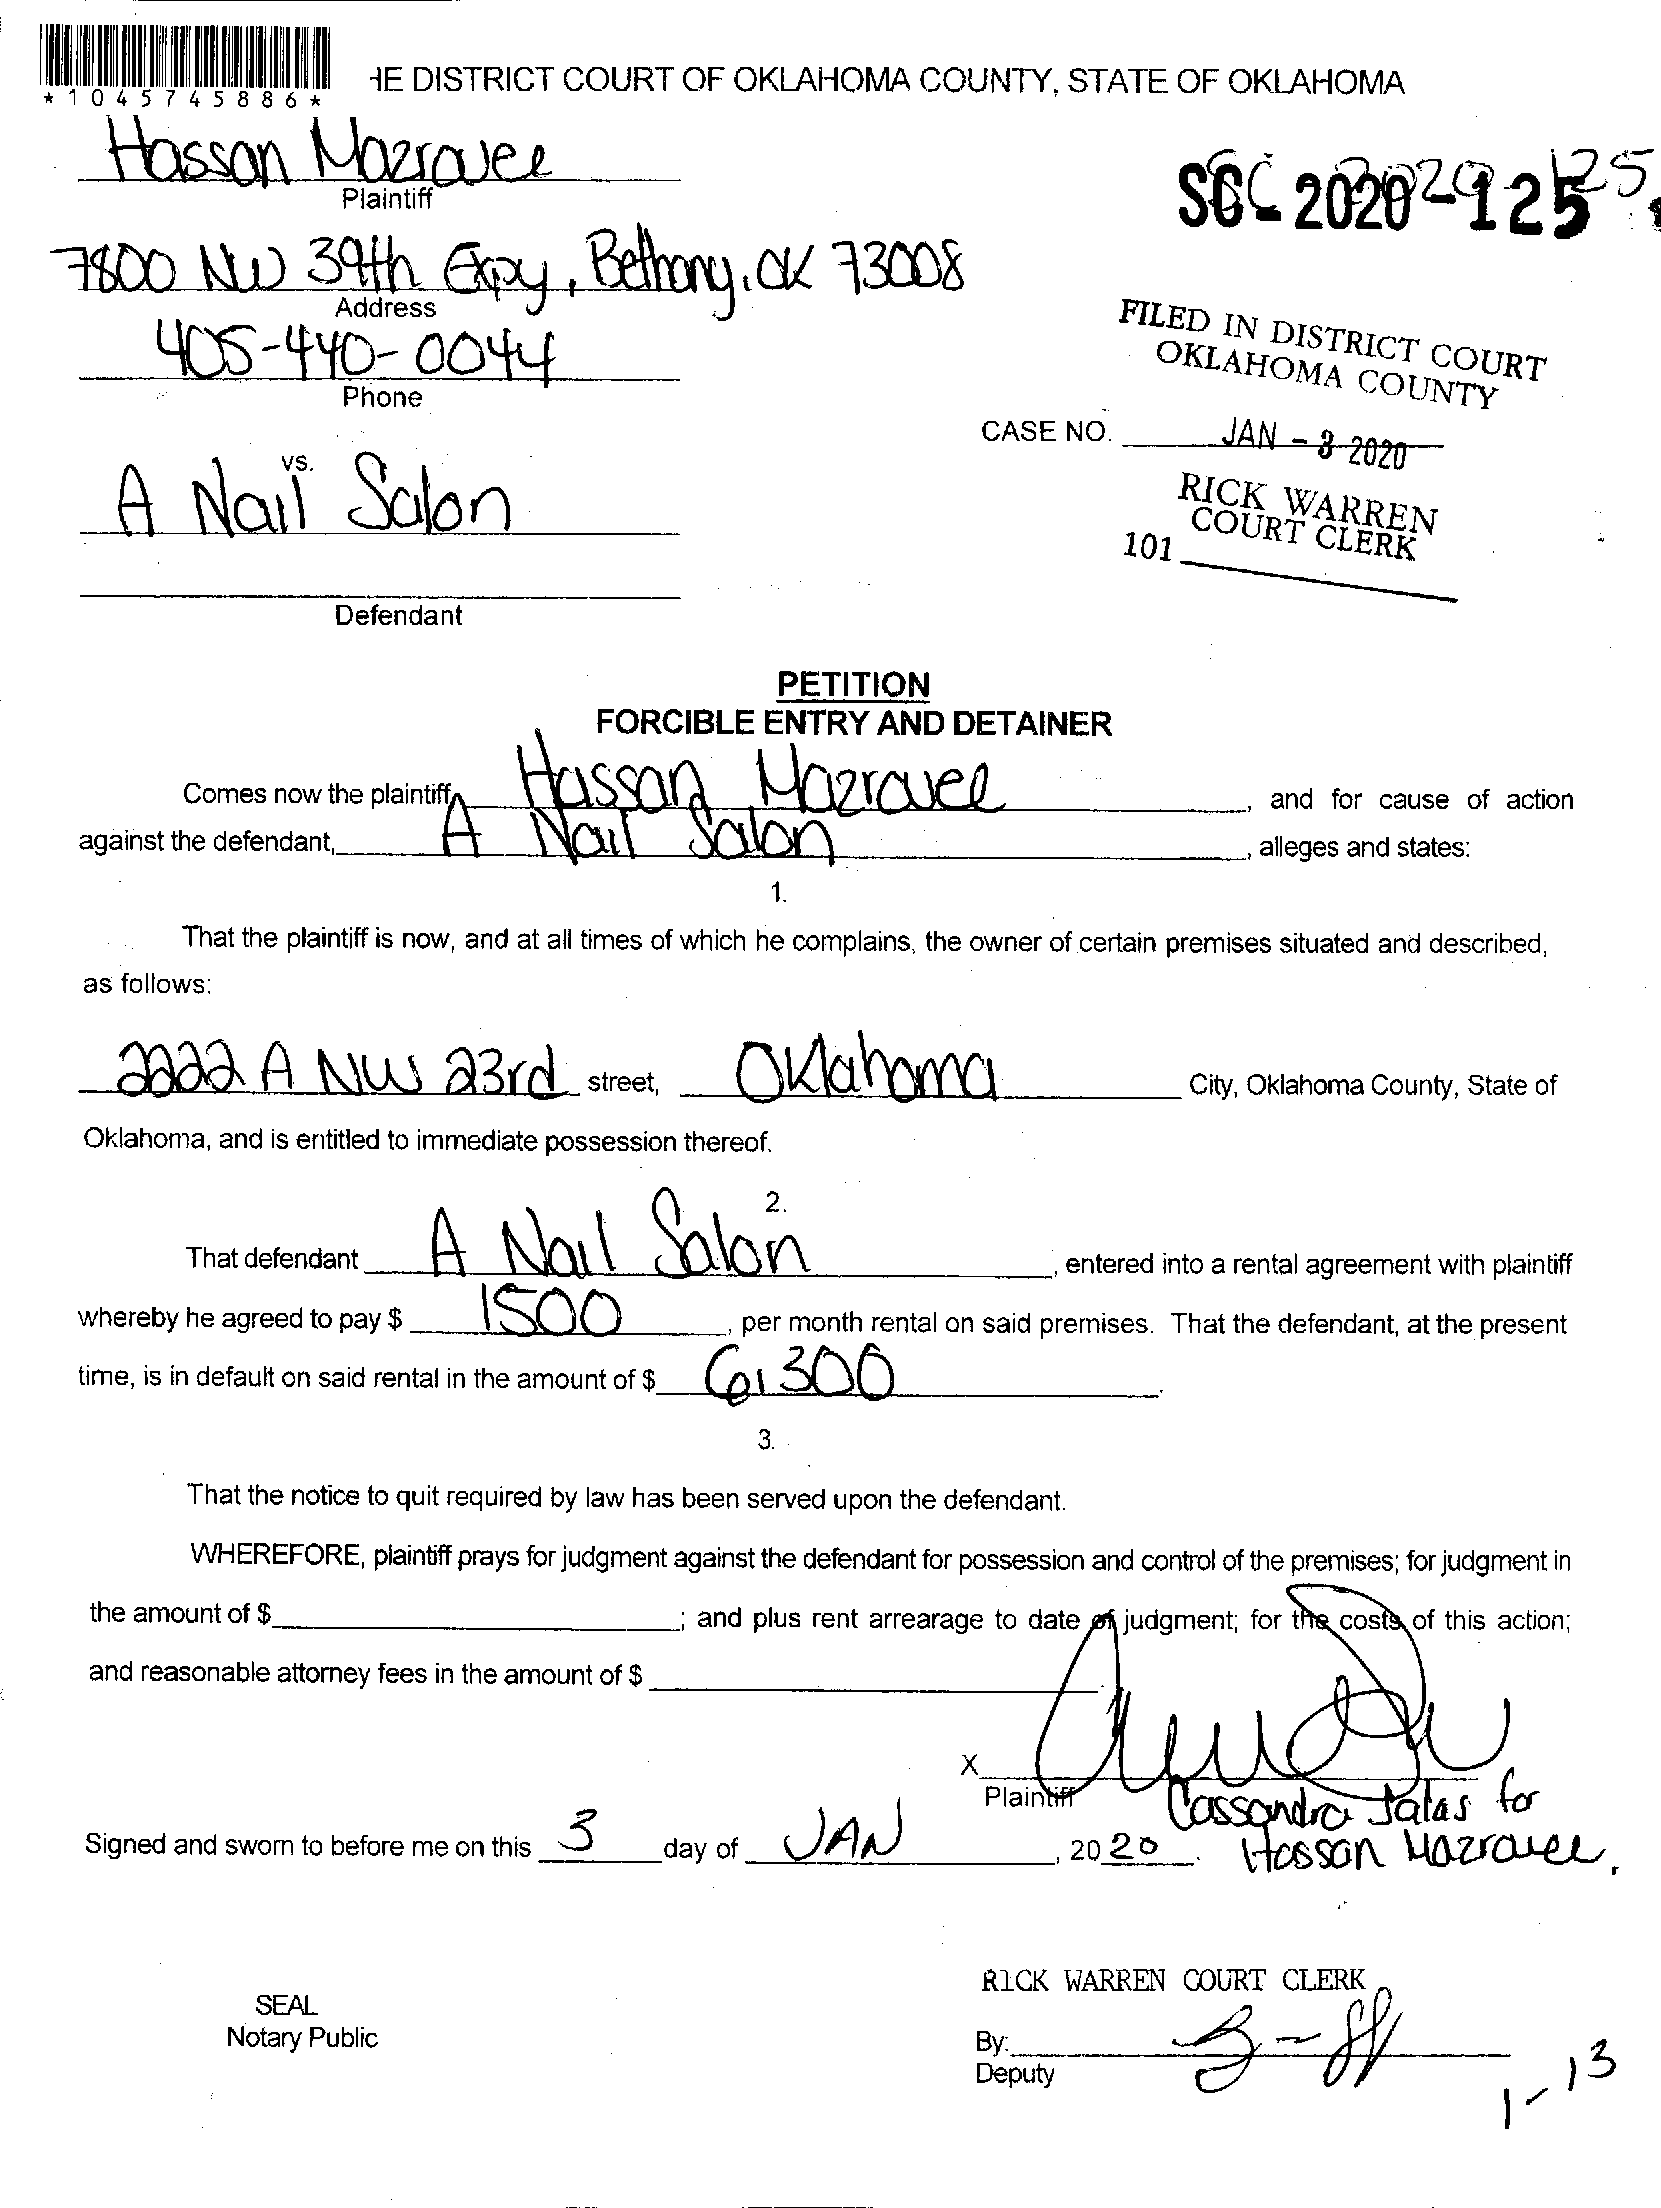 *1045745886*
HE DISTRICT COURT OF OKLAHOMA COUNTY, STATE OF OKLAHOMA
Hassan Mazravee
Plaintiff
SC - 2020 - 125
7800 NW 39th Expy, Bethany, OK 73008
Address
405-440-0044
Phone
FILED IN DISTRICT COURT
OKLAHOMA COUNTY
CASE NO. JAN - 3 2020
vs.
A Nail Salon
RICK WARREN
COURT CLERK
101
Defendant
PETITION
FORCIBLE ENTRY AND DETAINER
Comes now the plaintiff, Hassan Mazravee, and for cause of action
against the defendant, A Nail Salon, alleges and states:
1.
That the plaintiff is now, and at all times of which he complains, the owner of certain premises situated and described,
as follows:
2222 A NW 23rd street, Oklahoma City, Oklahoma County, State of
Oklahoma, and is entitled to immediate possession thereof.
2.
That defendant A Nail Salon, entered into a rental agreement with plaintiff
whereby he agreed to pay $ 1500, per month rental on said premises. That the defendant, at the present
time, is in default on said rental in the amount of $ 6,300.
3.
That the notice to quit required by law has been served upon the defendant.
WHEREFORE, plaintiff prays for judgment against the defendant for possession and control of the premises; for judgment in
the amount of $ ; and plus rent arrearage to date of judgment; for the costs of this action;
and reasonable attorney fees in the amount of $
X
Plaintiff
Cassandra Salas for
Signed and sworn to before me on this 3 day of JAN, 2020. Hassan Mazravee.
RICK WARREN COURT CLERK
SEAL
Notary Public
By:
Deputy
1-13